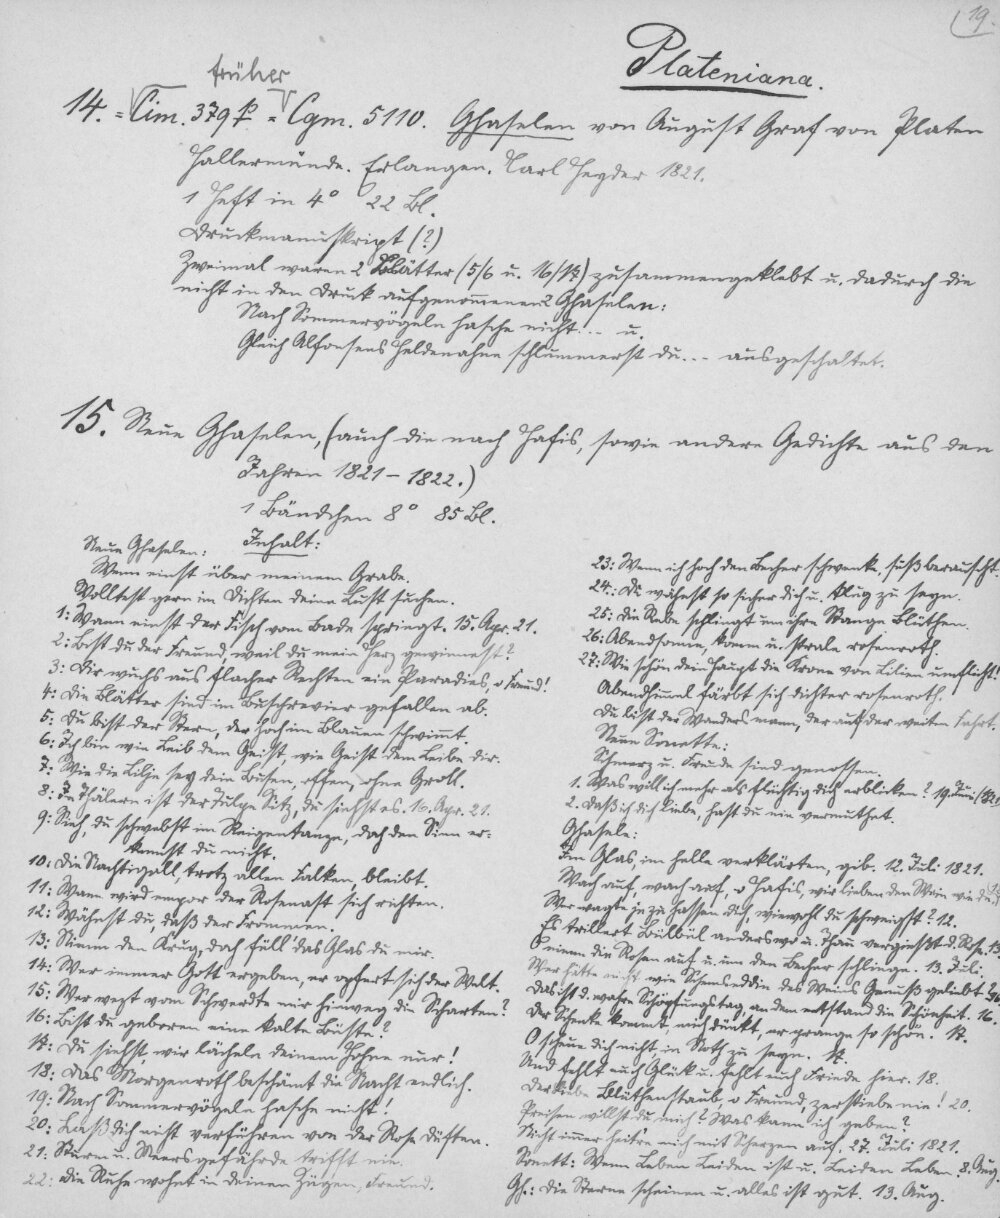 19.
Plateniana.
früher
14. = Cim. 379 p = Cgm. 5110. Ghaselen von August Graf von Platen
Hallermünde. Erlangen. Carl Heyder 1821.
1 Heft in 4° 22 Bl.
Druckmanuskript (?)
Zweimal waren 2 Blätter (5/6 u. 16/17) zusammengeklebt u. dadurch die
nicht in den Druck aufgenommenen 2 Ghaselen:
Nach Sommervögeln hasche nicht... u.
Gleich Alfonsens Heldenahne schlummerst du... ausgeschaltet.
15. Neue Ghaselen, (auch die nach Hafis, sowie andere Gedichte aus den
Jahren 1821-1822.)
1 Bändchen 8° 85 Bl.
Inhalt:
Neue Ghaselen:
Wenn einst über meinem Grabe.
Wolltest gern im Dichten deine Lust suchen.
1: Wann einst der Fisch vom Bade springt. 15. Apr. 21.
2: Bist du der Freund, weil du mein Herz gewinnest?
3: Dir wuchs aus flacher Rechten ein Paradies, o Freund!
4: Die Blätter sind im Buschrevier gefallen ab.
5: Du bist der Stern, der hoch im Blauen schwimmt.
6: Ich bin wie Leib dem Geist, wie Geist dem Leibe dir.
7: Wie die Lilje sey dein Busen offen, ohne Groll.
8: In Thälern ist der Tulpe Sitz, du siehst es. 16. Apr. 21.
9: Sieh, du schwebst im Reigentanze, doch den Sinn er-
kennst du nicht.
10: Die Nachtigall, trotz allen Falken, bleibt.
11: Wann wird empor der Rosenast sich richten.
12: Wähnst du, daß der Frommen.
13: Nimm den Krug, doch füll das Glas du mir.
14: Wer immer Gott ergeben, er opfert sich der Welt.
15: Wer wezt vom Schwerdte mir hinweg die Scharten?
16: Bist du geboren eine kalte Büste?
17: Du siehst, wir lächeln deinem Hohne nur!
18: Das Morgenroth beschämt die Nacht endlich.
19: Nach Sommervögeln hasche nicht!
20: Laß dich nicht verführen von der Rose Düften.
21: Sturm u. Meersgefährde trifft nie.
22: Die Ruhe wohnt in deinen Zügen, Freund.
23: Wenn ich hoch den Becher schwenke, süß berauscht.
24: Du wähnst so sicher dich u. klug zu seyn.
25: Die Rebe schlingt um ihre Stange Blüthen.
26: Abendsonne, komm u. strale rosenroth.
27: Wie schön dein Haupt die Krone von Lilien umflicht!
Abendhimmel färbt sich dichter rosenroth.
Du bist der Wandersmann, der auf der weiten Fahrt.
Neue Sonette:
Schmerz u. Freude sind genossen.
1. Was will ich mehr als flüchtig dich erblicken? 19. Juni
2. Daß ich dich liebe, hast du nie vermuthet.
Ghasele:
Im Glas, im helle verklärten, gib. 12. Juli 1821.
Wach auf, wach auf, o Hafis, wir lieben den Wein wie du.
Wer wagte je zu hassen dich, wiewohl du schweigst? 12.
Es trillert Bülbül anderswo u. Thau vergießt d. Rose. 13.
O nimm die Rosen auf u. um den Becher schlinge. 13. Juli.
Wer hätte nicht wie Schemseddin des Weins Genuß geliebt?
Das ist d. wahre Schöpfungstag, an dem entstand die Schönheit. 16.
Der Schenke kommt, mich dünkt, er prange so schön. 17.
O scheue dich nicht, in Noth zu seyn. 17.
Und fehlt euch Glük u. fehlt euch Friede hier. 18.
Der Liebe Blüthenstaub, o Freund, zerstiebe nie! 20.
Preisen willst du mich? Was kann ich geben?
Nicht immer heitre mich mit Scherzen auf. 27. Juli 1821.
Sonett: Wenn Leben Leiden ist u. Leiden Leben. 8. Aug.
Gh.: Die Sterne scheinen u. alles ist gut. 13. Aug.